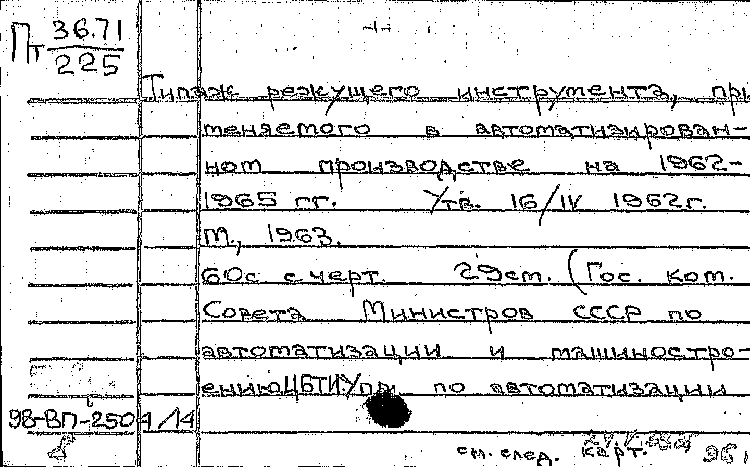 Пт 36.71
225
Типаж режущего инструмента, при
меняемого в автоматизирован-
ном производстве на 1962-
1965 гг. Утв. 16/IV 1962г.
М., 1963.
60с с черт. 29см. (Гос. ком.
Совета Министров СССР по
автоматизации и машиностро-
ениюЦБТИ по автоматизации
98-ВП-250 1/14
см. след. карт.